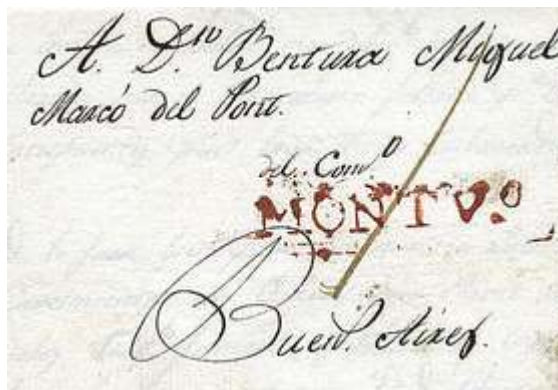 A. D.ⁿ Bentura Miguel
Marcó del Pont.
del Com.º
MONTVº
Buen.ˢ Aires.